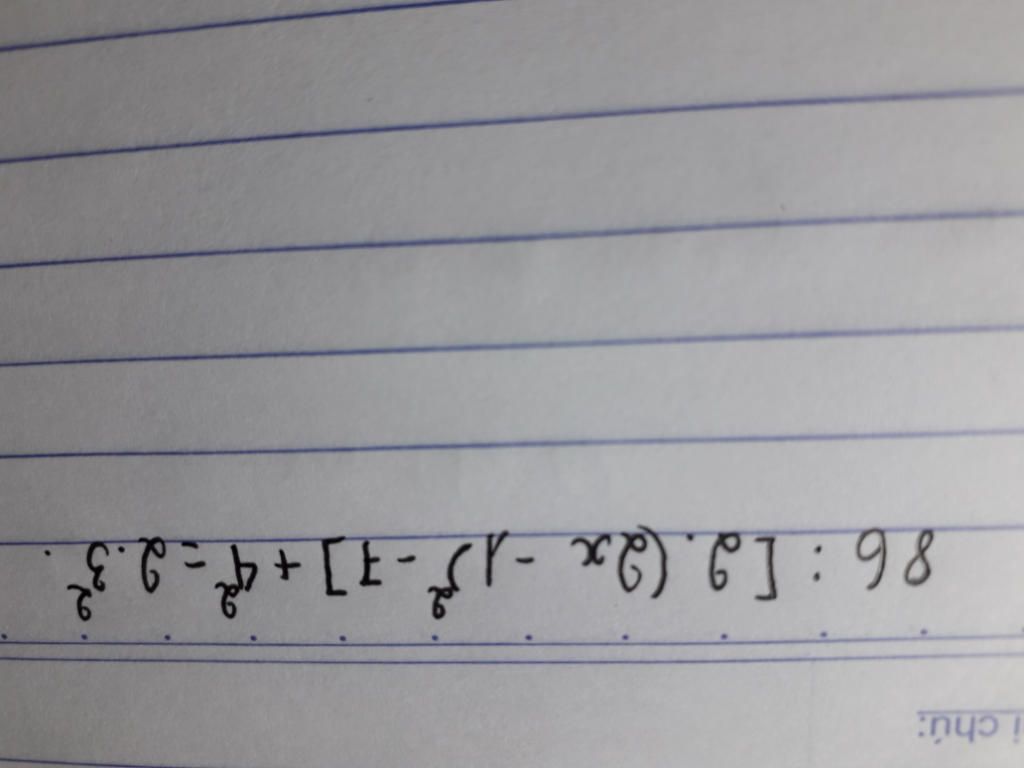 i chú:
86 : [2.(2x - 1)² - 7] + 4² = 2.3².